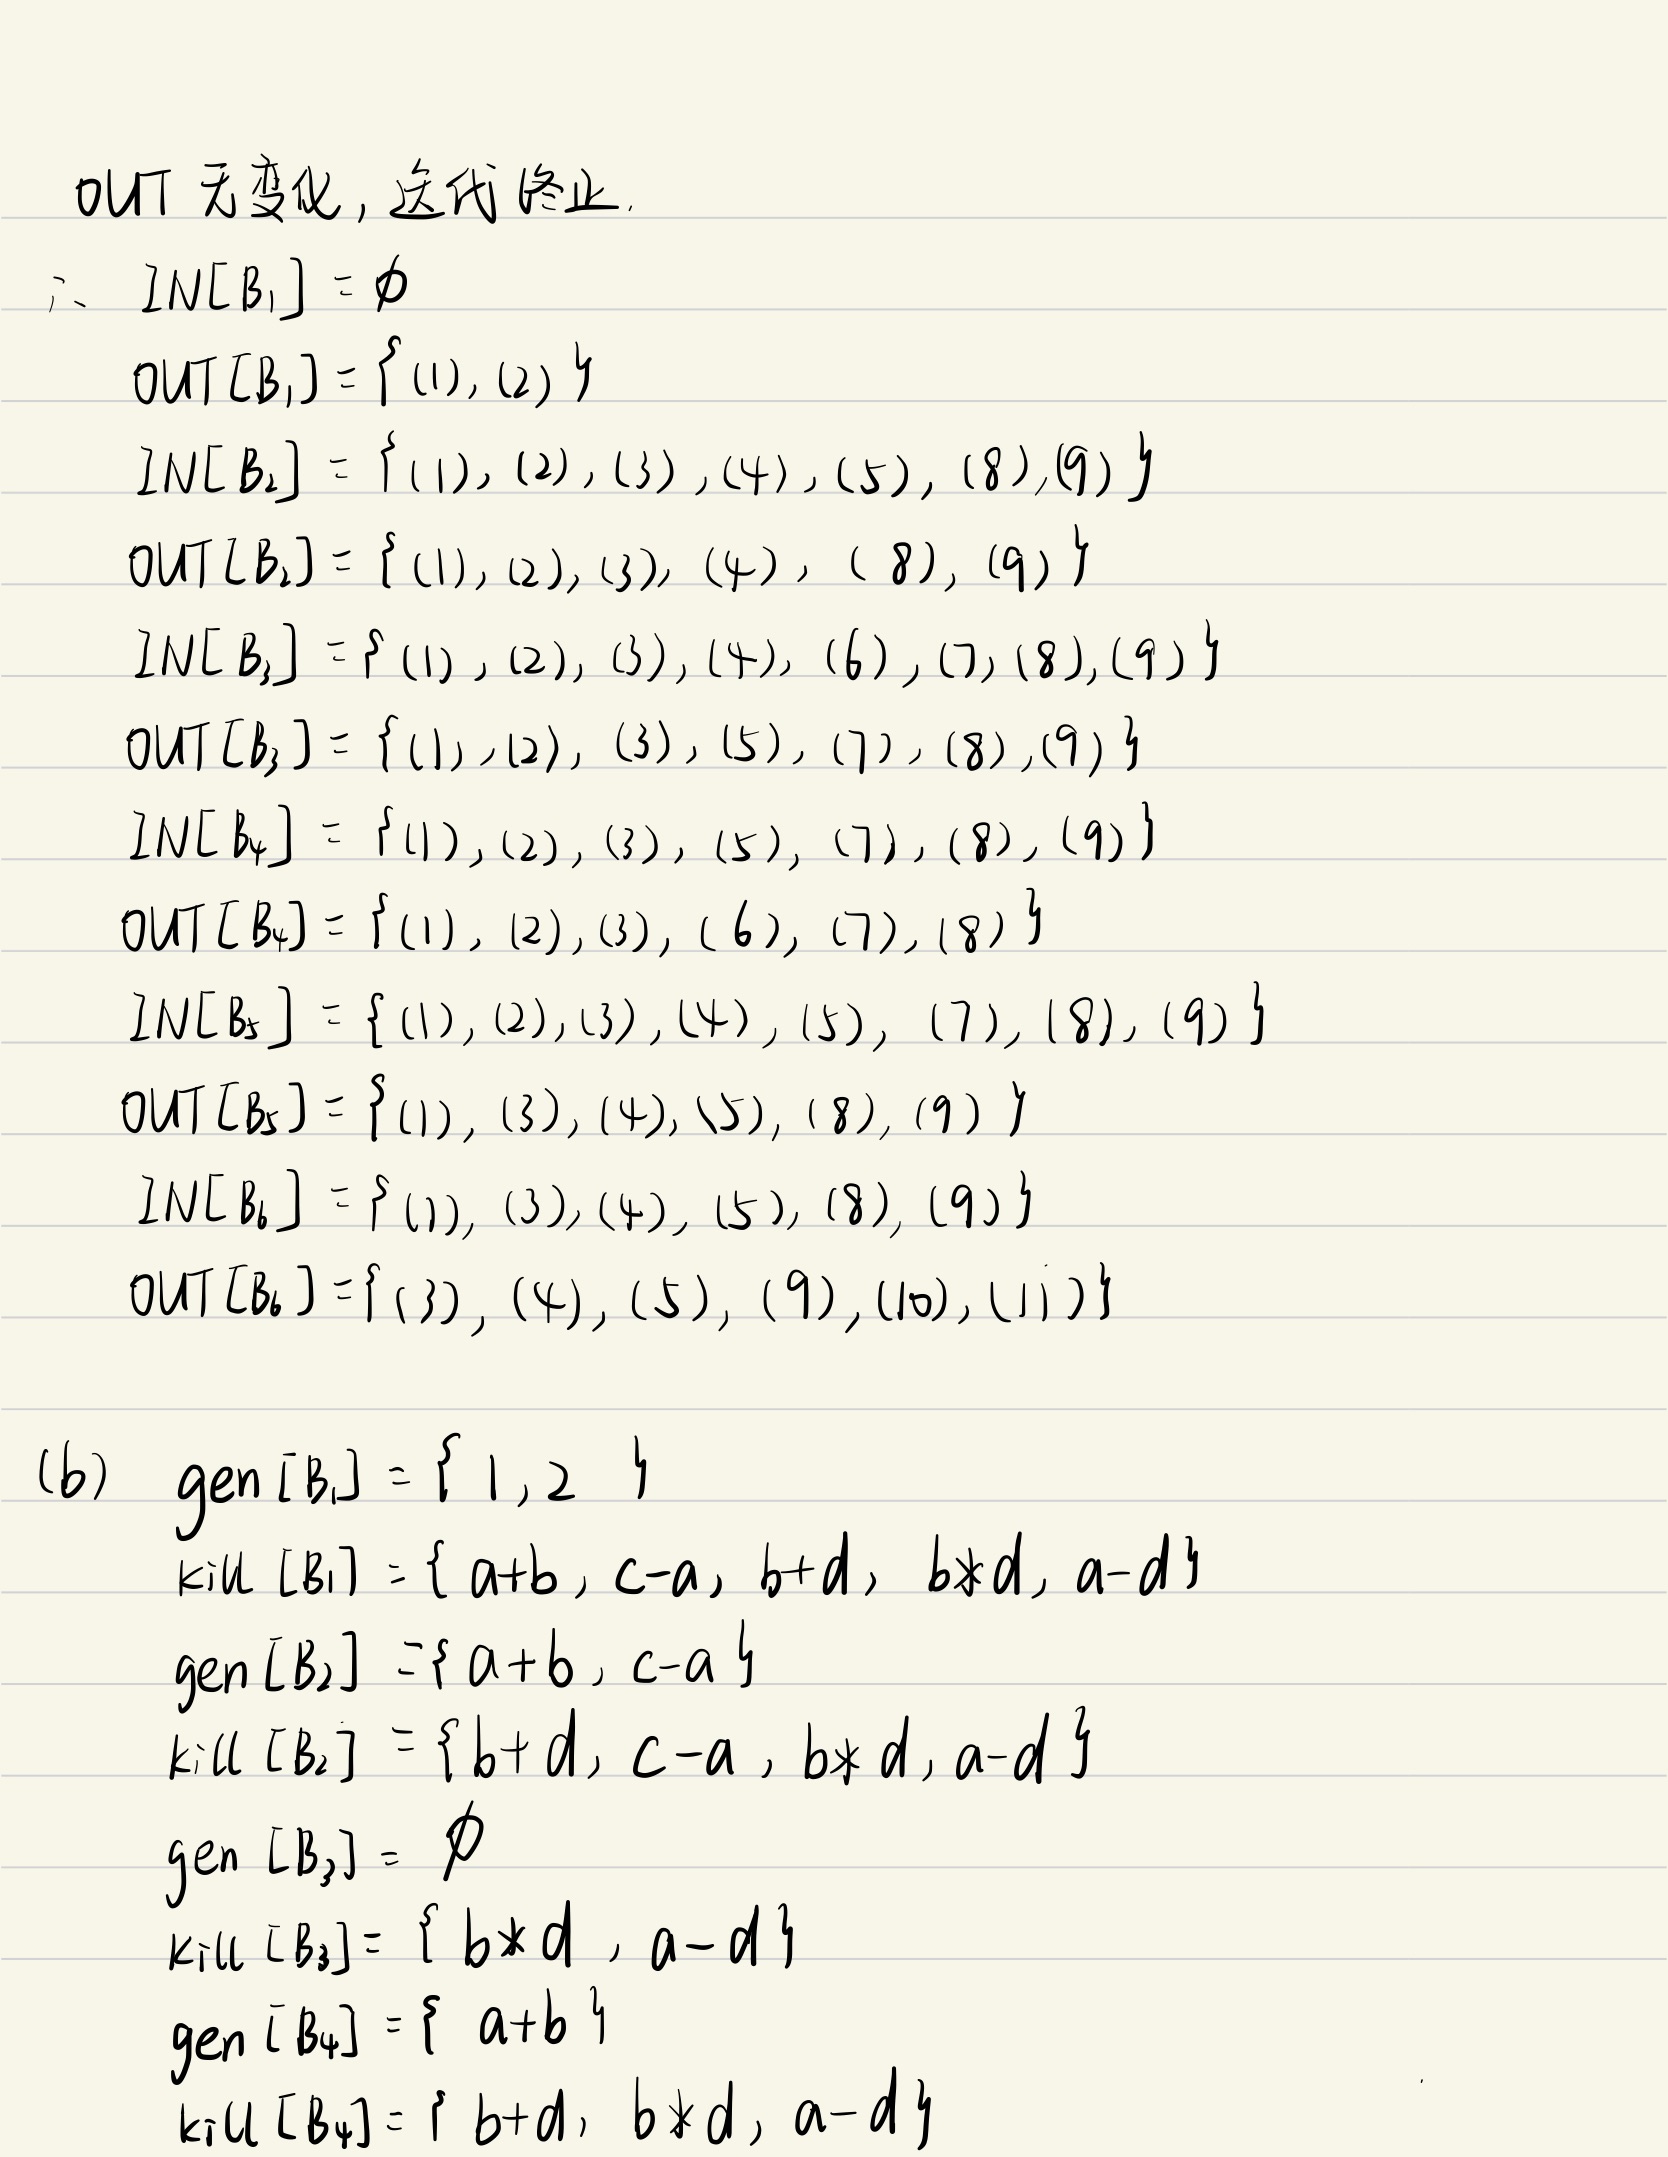 OUT 无变化, 迭代终止.
∴ IN[B₁] = ∅
OUT[B₁] = {(1), (2)}
IN[B₂] = {(1), (2), (3), (4), (5), (8), (9)}
OUT[B₂] = {(1), (2), (3), (4), (8), (9)}
IN[B₃] = {(1), (2), (3), (4), (6), (7, (8), (9)}
OUT[B₃] = {(1), (2), (3), (5), (7), (8), (9)}
IN[B₄] = {(1), (2), (3), (5), (7), (8), (9)}
OUT[B₄] = {(1), (2), (3), (6), (7), (8)}
IN[B₅] = {(1), (2), (3), (4), (5), (7), (8), (9)}
OUT[B₅] = {(1), (3), (4), (5), (8), (9)}
IN[B₆] = {(1), (3), (4), (5), (8), (9)}
OUT[B₆] = {(3), (4), (5), (9), (10), (11)}
(b) gen[B₁] = {1, 2}
kill[B₁] = {a+b, c-a, b+d, b*d, a-d}
gen[B₂] = {a+b, c-a}
kill[B₂] = {b+d, c-a, b*d, a-d}
gen[B₃] = ∅
kill[B₃] = {b*d, a-d}
gen[B₄] = {a+b}
kill[B₄] = {b+d, b*d, a-d}